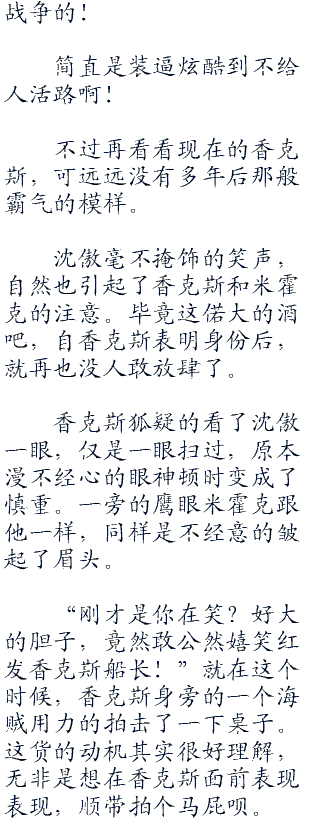 战争的！
简直是装逼炫酷到不给
人活路啊！
不过再看看现在的香克
斯，可远远没有多年后那般
霸气的模样。
沈傲毫不掩饰的笑声，
自然也引起了香克斯和米霍
克的注意。毕竟这偌大的酒
吧，自香克斯表明身份后，
就再也没人敢放肆了。
香克斯狐疑的看了沈傲
一眼，仅是一眼扫过，原本
漫不经心的眼神顿时变成了
慎重。一旁的鹰眼米霍克跟
他一样，同样是不经意的皱
起了眉头。
“刚才是你在笑？好大
的胆子，竟然敢公然嬉笑红
发香克斯船长！”就在这个
时候，香克斯身旁的一个海
贼用力的拍击了一下桌子。
这货的动机其实很好理解，
无非是想在香克斯面前表现
表现，顺带拍个马屁呗。